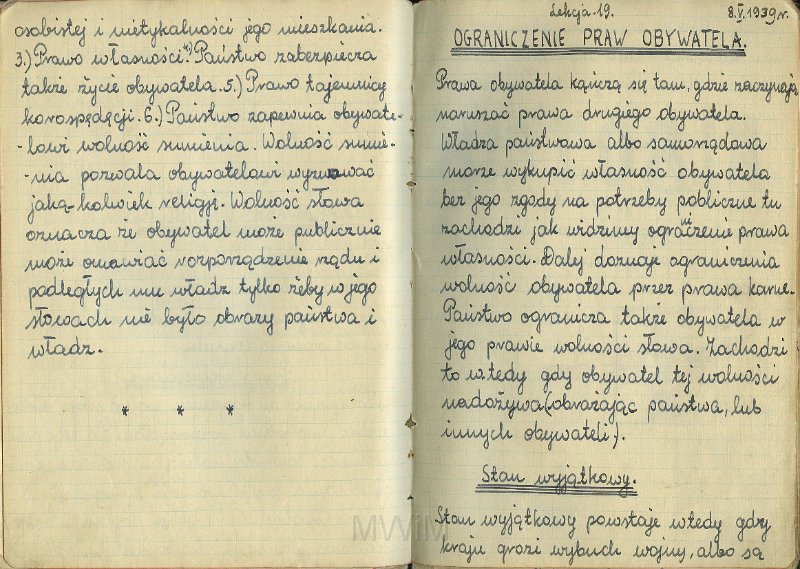 osobistej i nietykalności jego mieszkania.
3.) Prawo własności 4.) Państwo zabezpiecza
także życie obywatela. 5.) Prawo tajemnicy
korospędęcji. 6.) Państwo zapewnia obywate-
-lowi wolność sumienia. Wolność sumie-
-nia pozwala obywatelowi wyznować
jaką-kolwiek religję. Wolność słowa
oznacza że obywatel może publicznie
może omawiać rozporządzenie rządu i
podległych mu władz tylko żeby w jego
słowach nie było obrazy państwa i
władz.
* * *
Lekcja 19. 8.V.1939 r.
OGRANICZENIE PRAW OBYWATELA.
Prawa obywatela kączą się tam, gdzie zaczynają
naruszać prawa drugiego obywatela.
Władza państwowa albo samorządowa
morze wykupić własność obywatela
bez jego zgody na potrzeby pobliczne tu
zachodzi jak widzimy ograniczenie prawa
własności. Dalej doznaje ograniczenia
wolność obywatela przez prawa karne.
Państwo ogranicza także obywatela w
jego prawie wolności słowa. Zachodzi
to wtedy gdy obywatel tej wolności
nadożywa (obrażając państwa, lub
innych obywateli).
Stan wyjątkowy.
Stan wyjątkowy powstaje wtedy gdy
kraju grozi wybuch wojny, albo są
MWiM